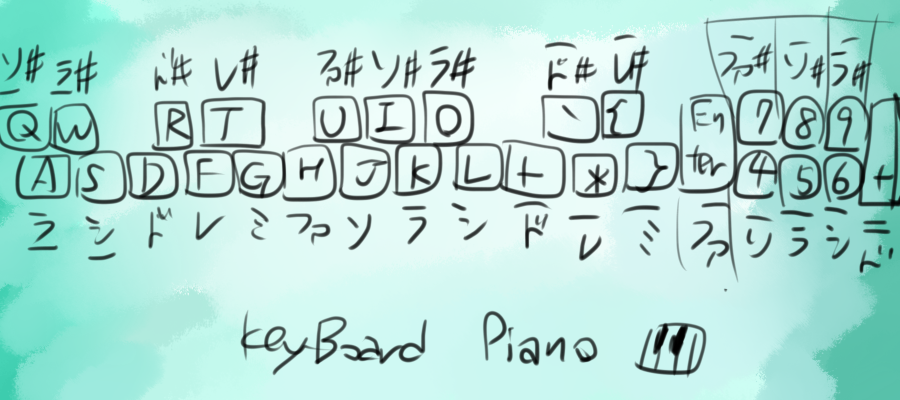 ソ# ラ# ド# レ# ファ# ソ# ラ# ド# レ# ファ# ソ# ラ#
Q W R T U I O ` { En 7 8 9
A S D F G H J K L + * } ter 4 5 6 +
ラ シ ド レ ミ ファ ソ ラ シ ド レ ミ ファ ソ ラ シ ド
keyBoard Piano